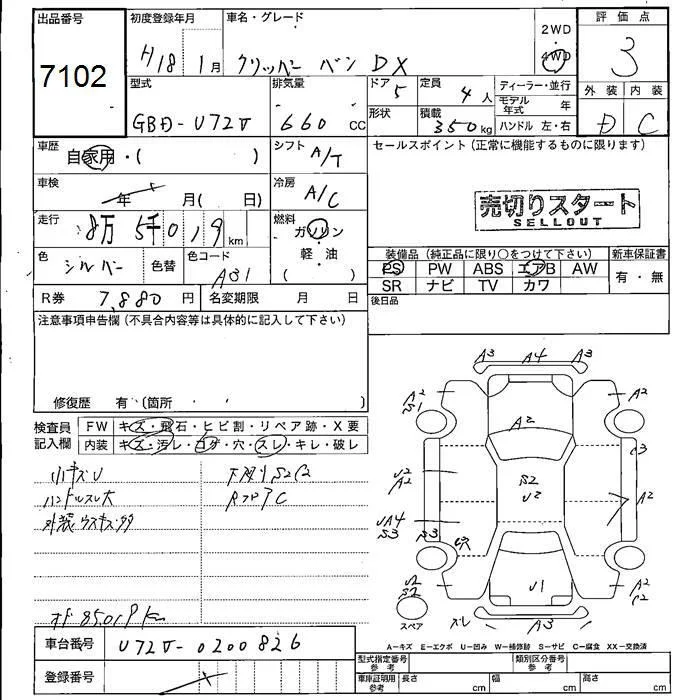 出品番号 初度登録年月 車名・グレード 2WD 評価点
7102 H18 1月 クリッパー バン DX 4WD 3
型式 排気量 ドア 定員 ディーラー・並行 外装 内装
GBD-U72V 660 CC 5 4人 モデル年式 年 D C
形状 積載 350kg ハンドル 左・右
車歴 自家用・( ) シフト A/T セールスポイント (正常に機能するものに限ります)
車検 年 月( 日) 冷房 A/C
売切りスタート
SELLOUT
走行 8万 5千 0 1 9 km 燃料 ガソリン・軽油 ( )
色 シルバー 色替 色コード A31
装備品 (純正品に限り○をつけて下さい) 新車保証書
PS PW ABS エアB AW 有・無
SR ナビ TV カワ
R券 7,880円 名変期限 月 日 後日品
注意事項申告欄 (不具合内容等は具体的に記入して下さい)
修復歴 有・(箇所 ・ )
検査員 FW キズ・飛石・ヒビ割・リペア跡・X要
記入欄 内装 キズ・汚レ・コゲ・穴・スレ・キレ・破レ
小キズU 下廻りS2C2
ハンドルスレ大 RフロアC
外装ウスキズ多
オド 85,019km
A3 A4 A3
A2 S1 A2
A2
C3
U2 A2 S2 U2 A2
UA4 S3 S3
U穴
U2 S2 U1 A2 C2
スペア スレ A3
A-キズ E-エクボ U-凹み W-補修跡 S-サビ C-腐食 XX-交換済
車台番号 U72V-0200826
型式指定番号 参考 類別区分番号 参考
登録番号 車庫証明用 参考 長さ cm 幅 cm 高さ cm